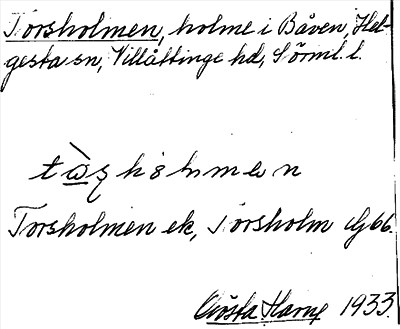 Torsholmen, holme i Båven, Hel-
gesta sn, Villåttinge hd, Sörml. l.
Torsholmen ek, Torsholm Gj 66.
Gösta Harng 1933.